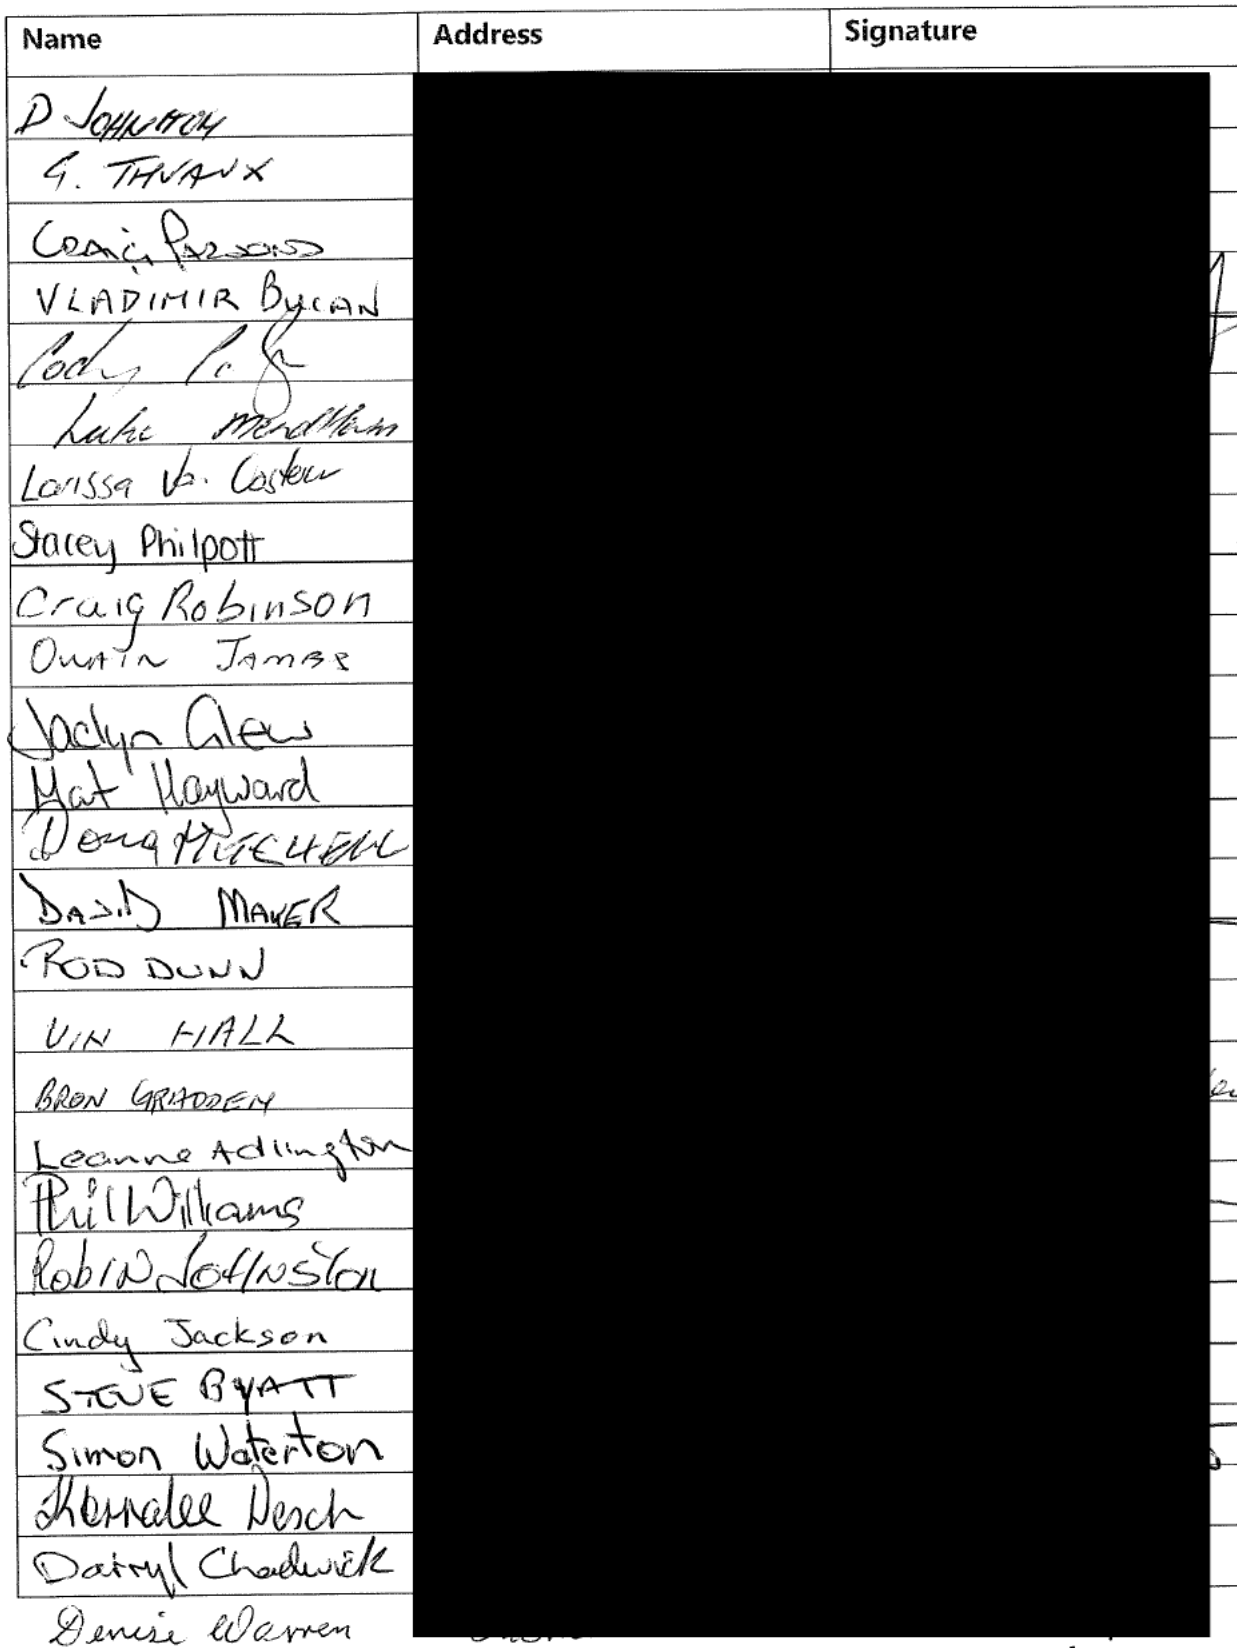 Name Address Signature
D JOHNSTON
G.
CRAIG PARSONS
VLADIMIR
Cody
Luke Mendham
Larissa
Stacey Philpott
Craig Robinson
OWAIN JAMES
Jaclyn Glew
Mat Hayward
Doug MITCHELL
DAVID MAKER
ROD DUNN
VIN HALL
BRON GRADDEN
Leanne Adlington
Phil Williams
ROBIN JOHNSTON
Cindy Jackson
STEVE BYATT
Simon Waterton
Kerralee Desch
Darryl Chadwick
Denise Warren